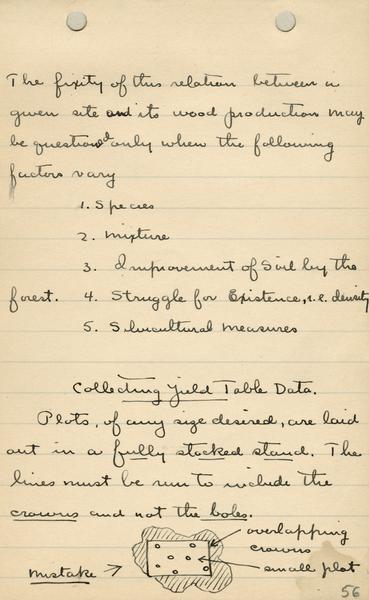 The fixity of this relation between a
given site and its wood production may
be questioned only when the following
factors vary
1. Species
2. Mixture
3. Improvement of Soil by the
forest. 4. Struggle for Existence, i.e. density
5. Silvicultural Measures
Collecting Yield Table Data.
Plots, of any size desired, are laid
out in a fully stocked stand. The
lines must be run to include the
crowns and not the boles.
overlapping
crowns
small plot
Mistake
56